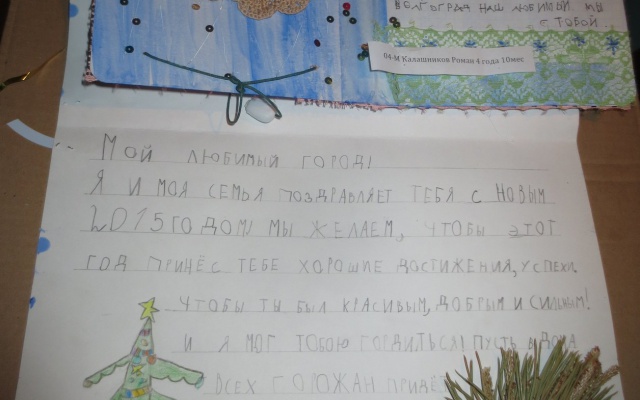 ВОЛГОГРАД НАШ ЛЮБИМЫЙ МЫ
С ТОБОЙ
04-М Калашников Роман 4 года 10мес
МОЙ ЛЮБИМЫЙ ГОРОД!
Я И МОЯ СЕМЬЯ ПОЗДРАВЛЯЕТ ТЕБЯ С НОВЫМ
2015 ГОДОМ! МЫ ЖЕЛАЕМ, ЧТОБЫ ЭТОТ
ГОД ПРИНЁС ТЕБЕ ХОРОШИЕ ДОСТИЖЕНИЯ, УСПЕХИ.
ЧТОБЫ ТЫ БЫЛ КРАСИВЫМ, ДОБРЫМ И СИЛЬНЫМ!
И Я МОГ ТОБОЮ ГОРДИТЬСЯ! ПУСТЬ В ДОМА
ВСЕХ ГОРОЖАН